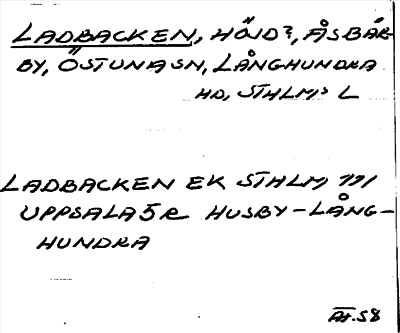 LADBACKEN, HÖJD?, ÅSBÄR-
BY, ÖSTUNA SN, LÅNGHUNDRA
HD, STHLMS L
LADBACKEN EK STHLM 111
UPPSALA 5 R HUSBY-LÅNG-
HUNDRA
AF.58